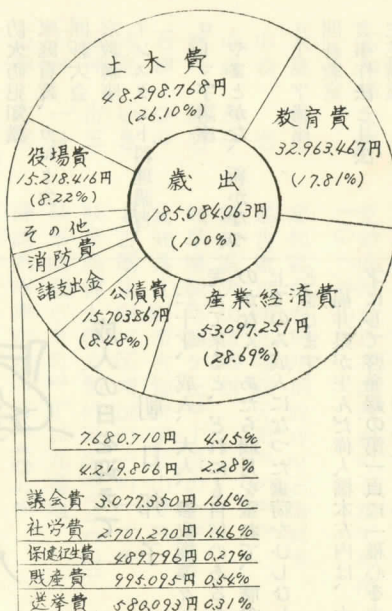 土木費
48.298.768円
(26.10%)
教育費
32.963.467円
(17.81%)
役場費
15.218.416円
(8.22%)
歳出
185.084.063円
(100%)
その他
消防費
諸支出金
公債費
15.703867円
(8.48%)
産業経済費
53.097.251円
(28.69%)
7.680.710円 4.15%
4.219.806円 2.28%
議会費 3.077.350円 1.66%
社労費 2.701.270円 1.46%
保健衛生費 489.796円 0.27%
財産費 995.095円 0.54%
選挙費 580.093円 0.31%